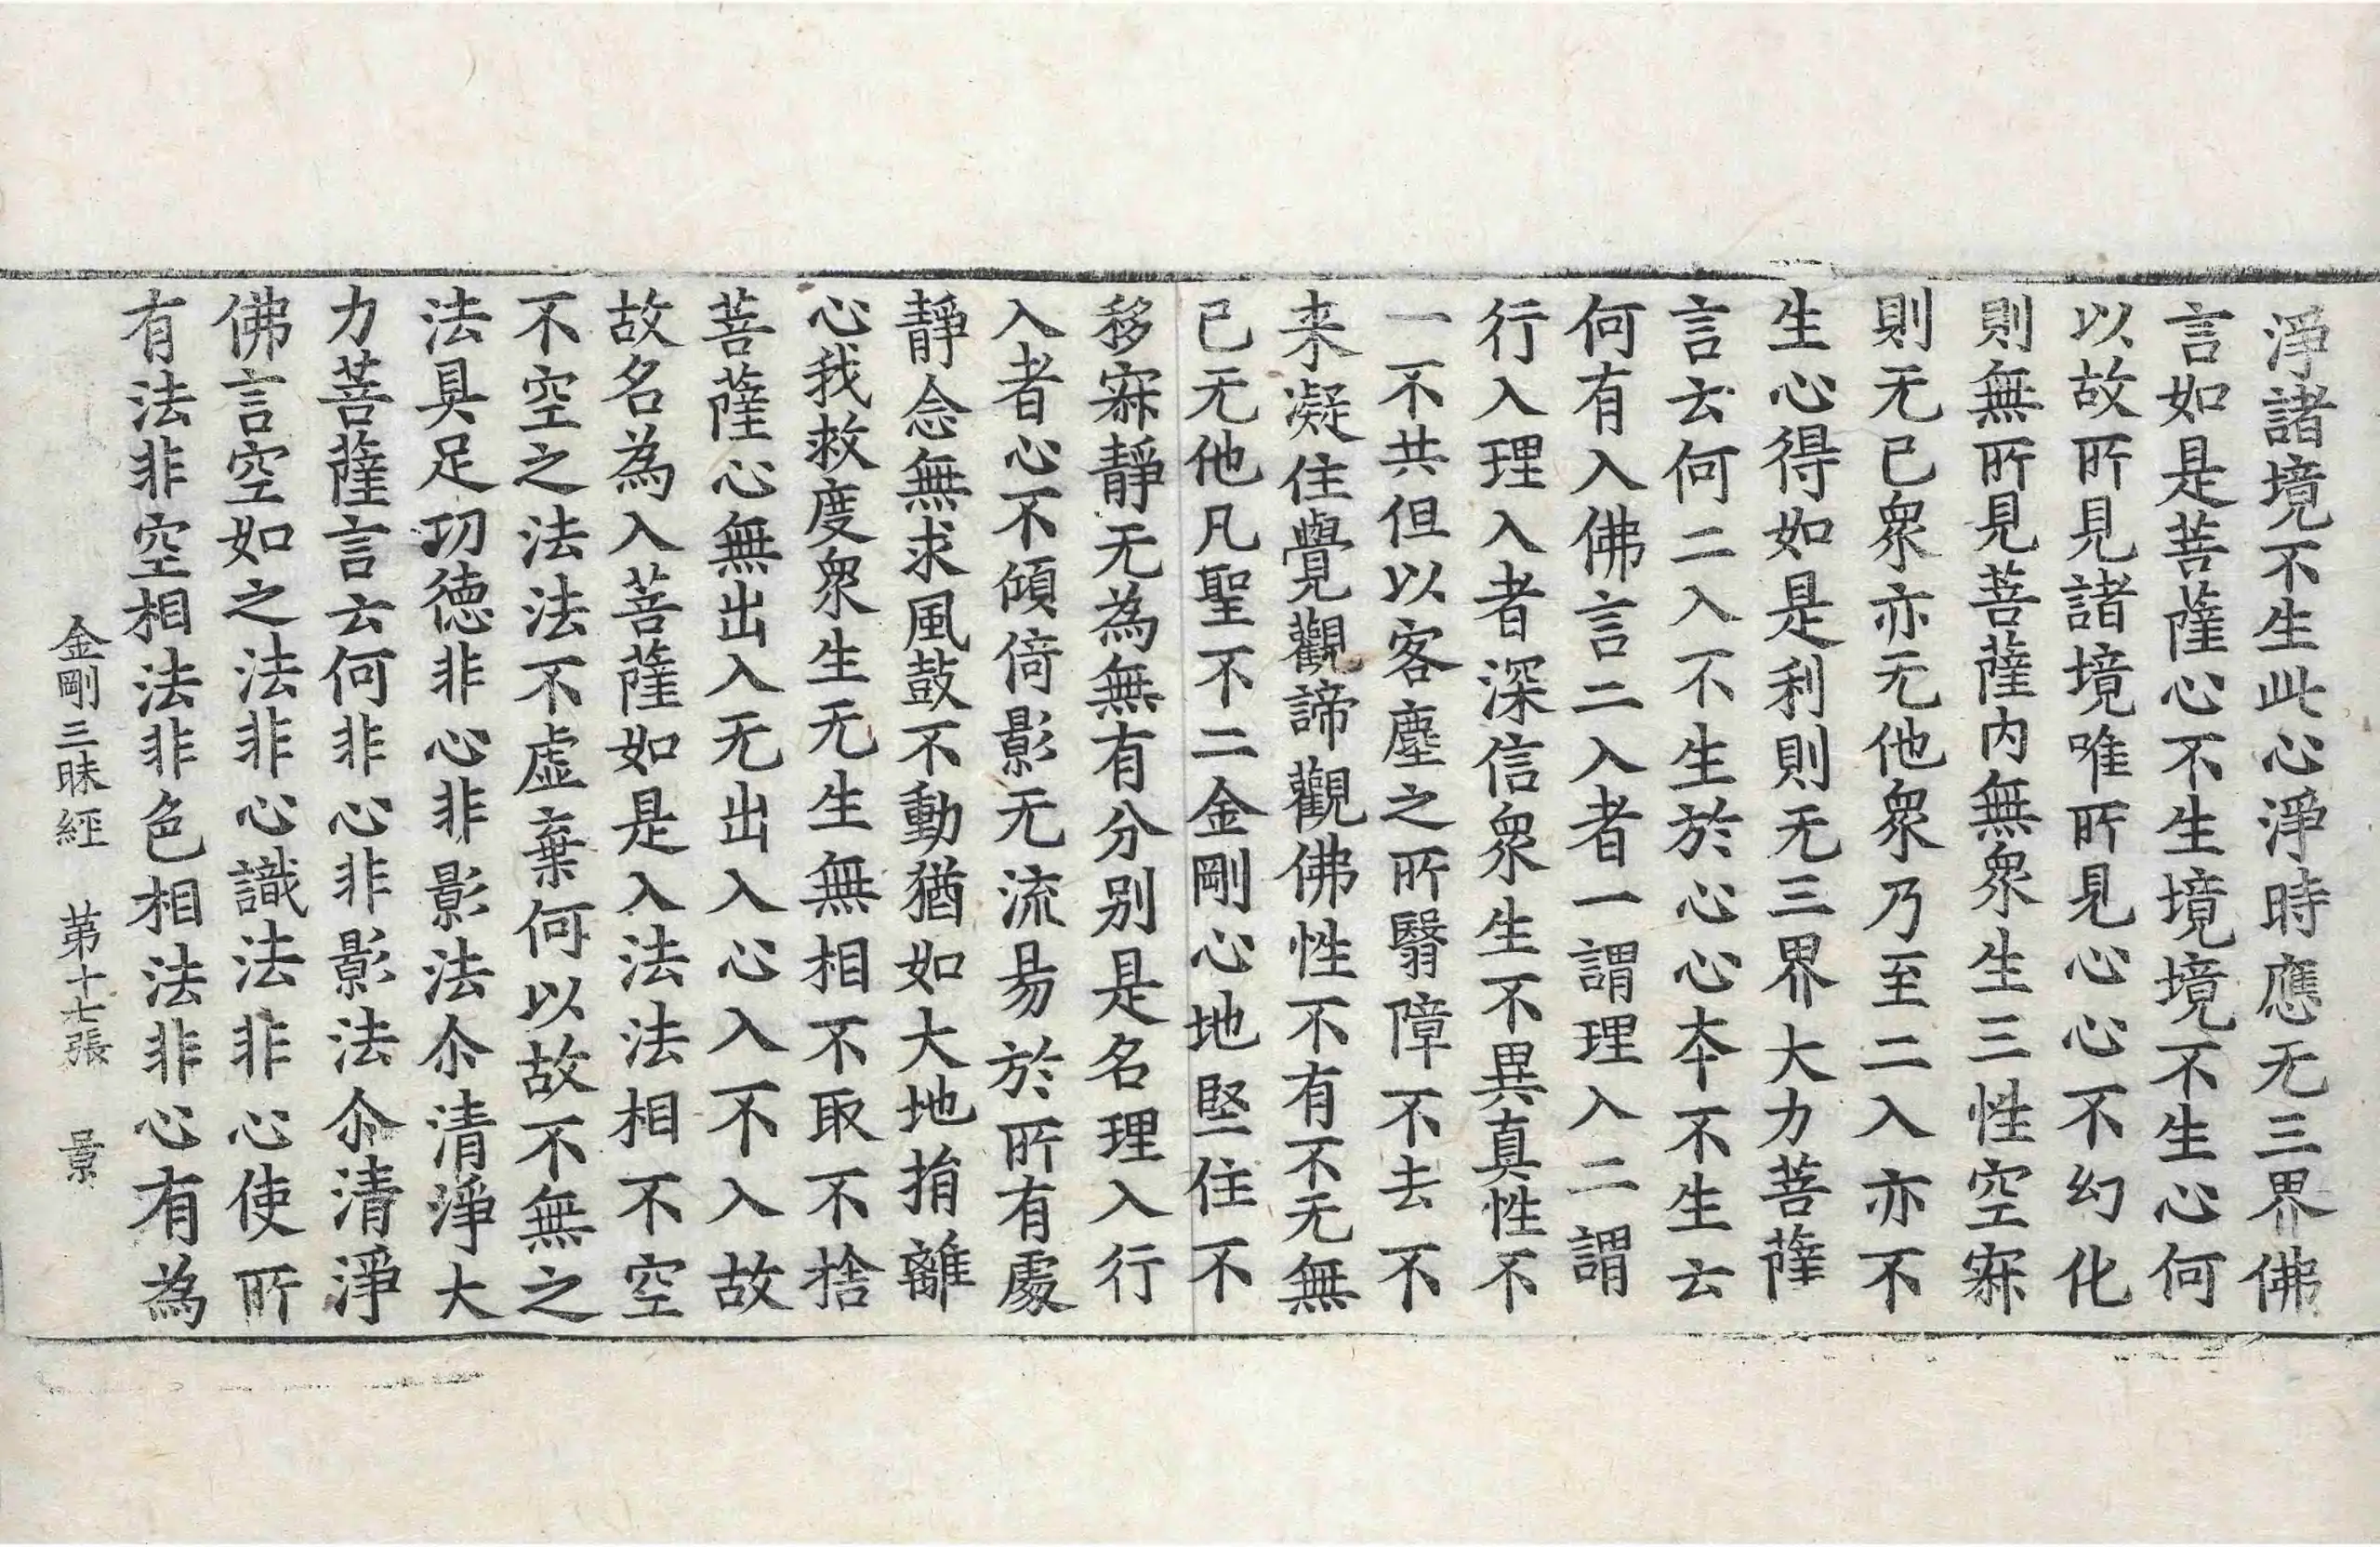 淨諸境不生此心淨時應无三界佛
言如是菩薩心不生境境不生心何
以故所見諸境唯所見心心不幻化
則無所見菩薩內無衆生三性空寂
則无己衆亦无他衆乃至二入亦不
生心得如是利則无三界大力菩薩
言云何二入不生於心心本不生云
何有入佛言二入者一謂理入二謂
行入理入者深信衆生不異真性不
一不共但以客塵之所翳障不去不
来凝住覺觀諦觀佛性不有不无無
已无他凡聖不二金剛心地堅住不
移寂靜无為無有分別是名理入行
入者心不傾倚影无流易於所有處
靜念無求風鼓不動猶如大地捐離
心我救度衆生无生無相不取不捨
菩薩心無出入无出入心入不入故
故名為入菩薩如是入法法相不空
不空之法法不虛棄何以故不無之
法具足功德非心非影法尒清淨大
力菩薩言云何非心非影法尒清淨
佛言空如之法非心識法非心使所
有法非空相法非色相法非心有為
金剛三昧經 第十七張 景